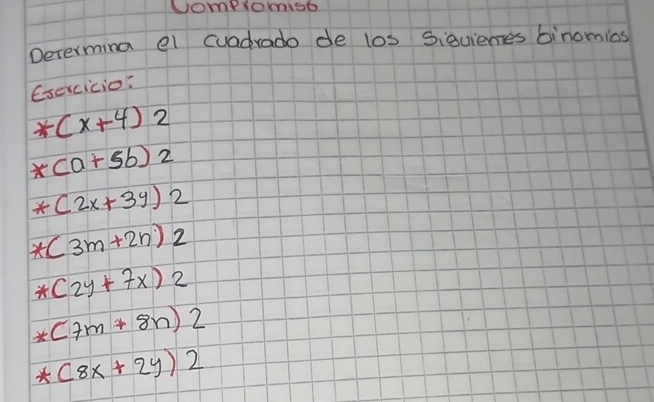 Compromiso
Determina el cuadrado de los siguientes binomios
Ejercicio:
*(x+4) 2
*(a+5b) 2
*(2x+3y) 2
*(3m+2n) 2
*(2y+7x) 2
*(7m+8n) 2
*(8x+2y) 2